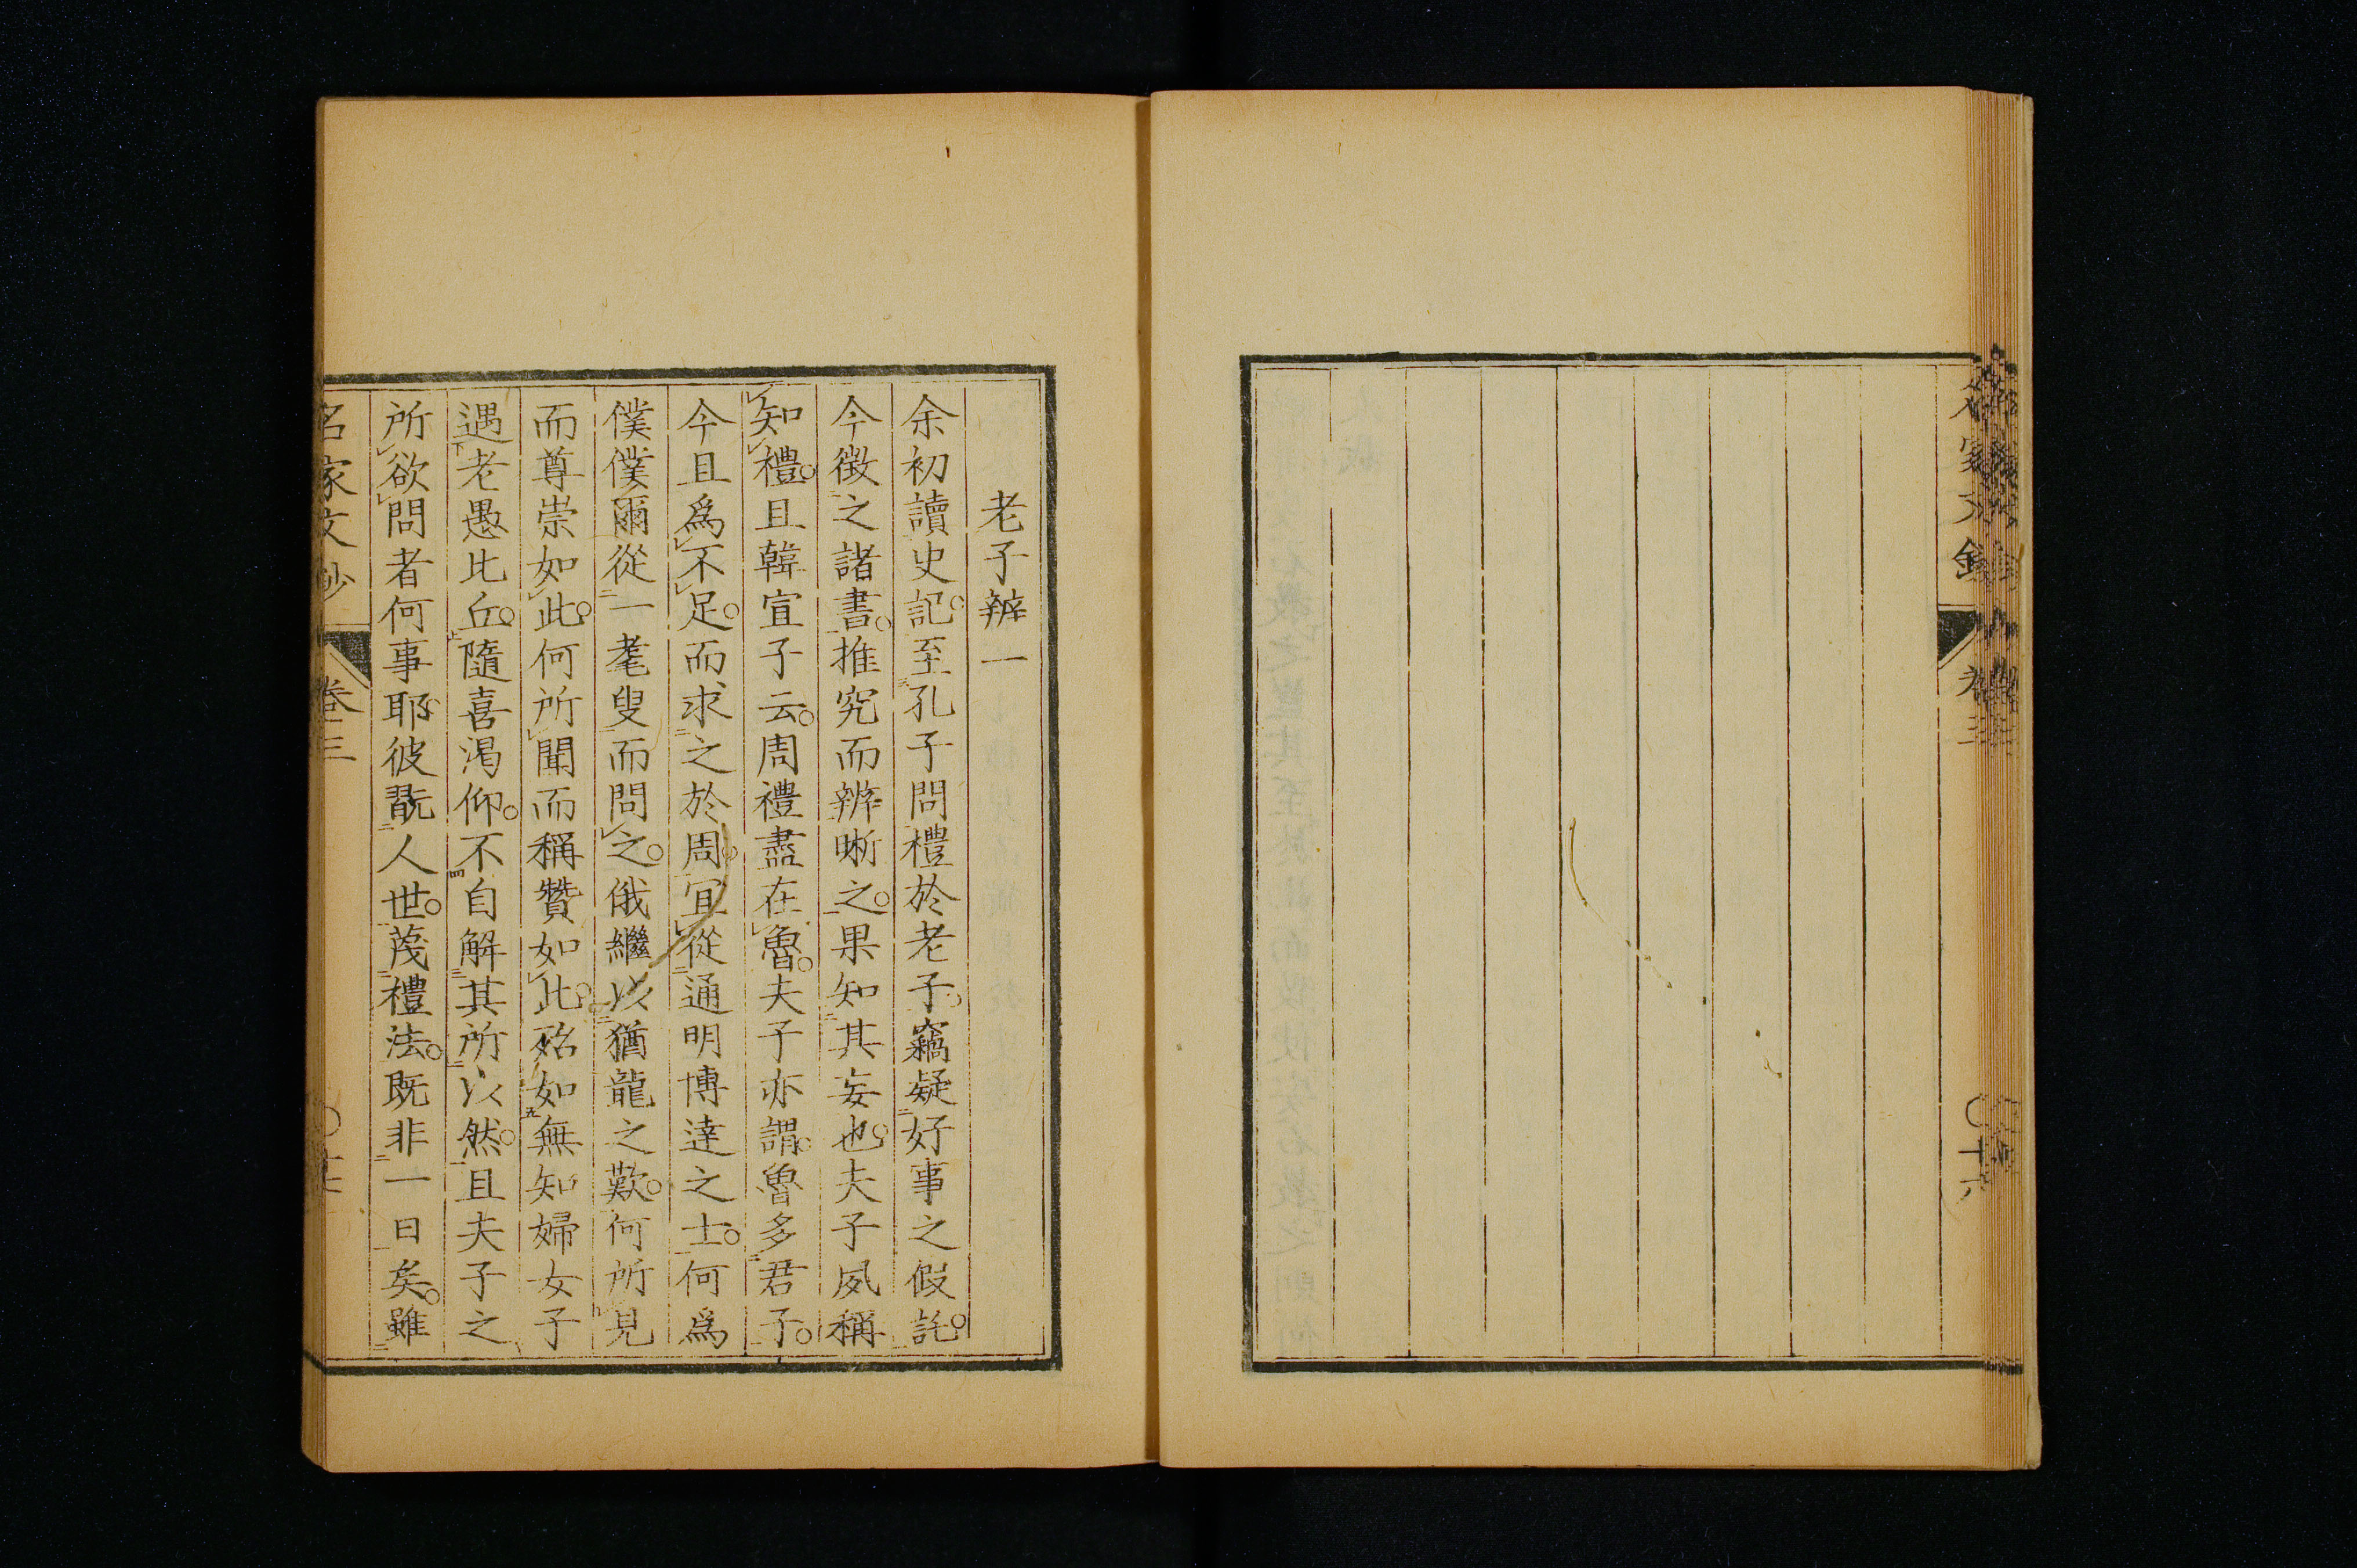 老子辨一
余初讀史記至孔子問禮於老子竊疑好事之假託
今徴之諸書推究而辨晰之果知其妄也夫子夙稱
知禮且韓宣子云周禮盡在魯夫子亦謂魯多君子
今且爲不足而求之於周宜從通明博達之士何爲
僕僕爾從一耄叟而問之俄繼以猶龍之歎何所見
而尊崇如此何所聞而稱贊如此殆如無知婦女子
遇老愚比丘隨喜渇仰不自解其所以然且夫子之
所欲問者何事耶彼翫人世蔑禮法既非一日矣雖
名家文鈔 卷三